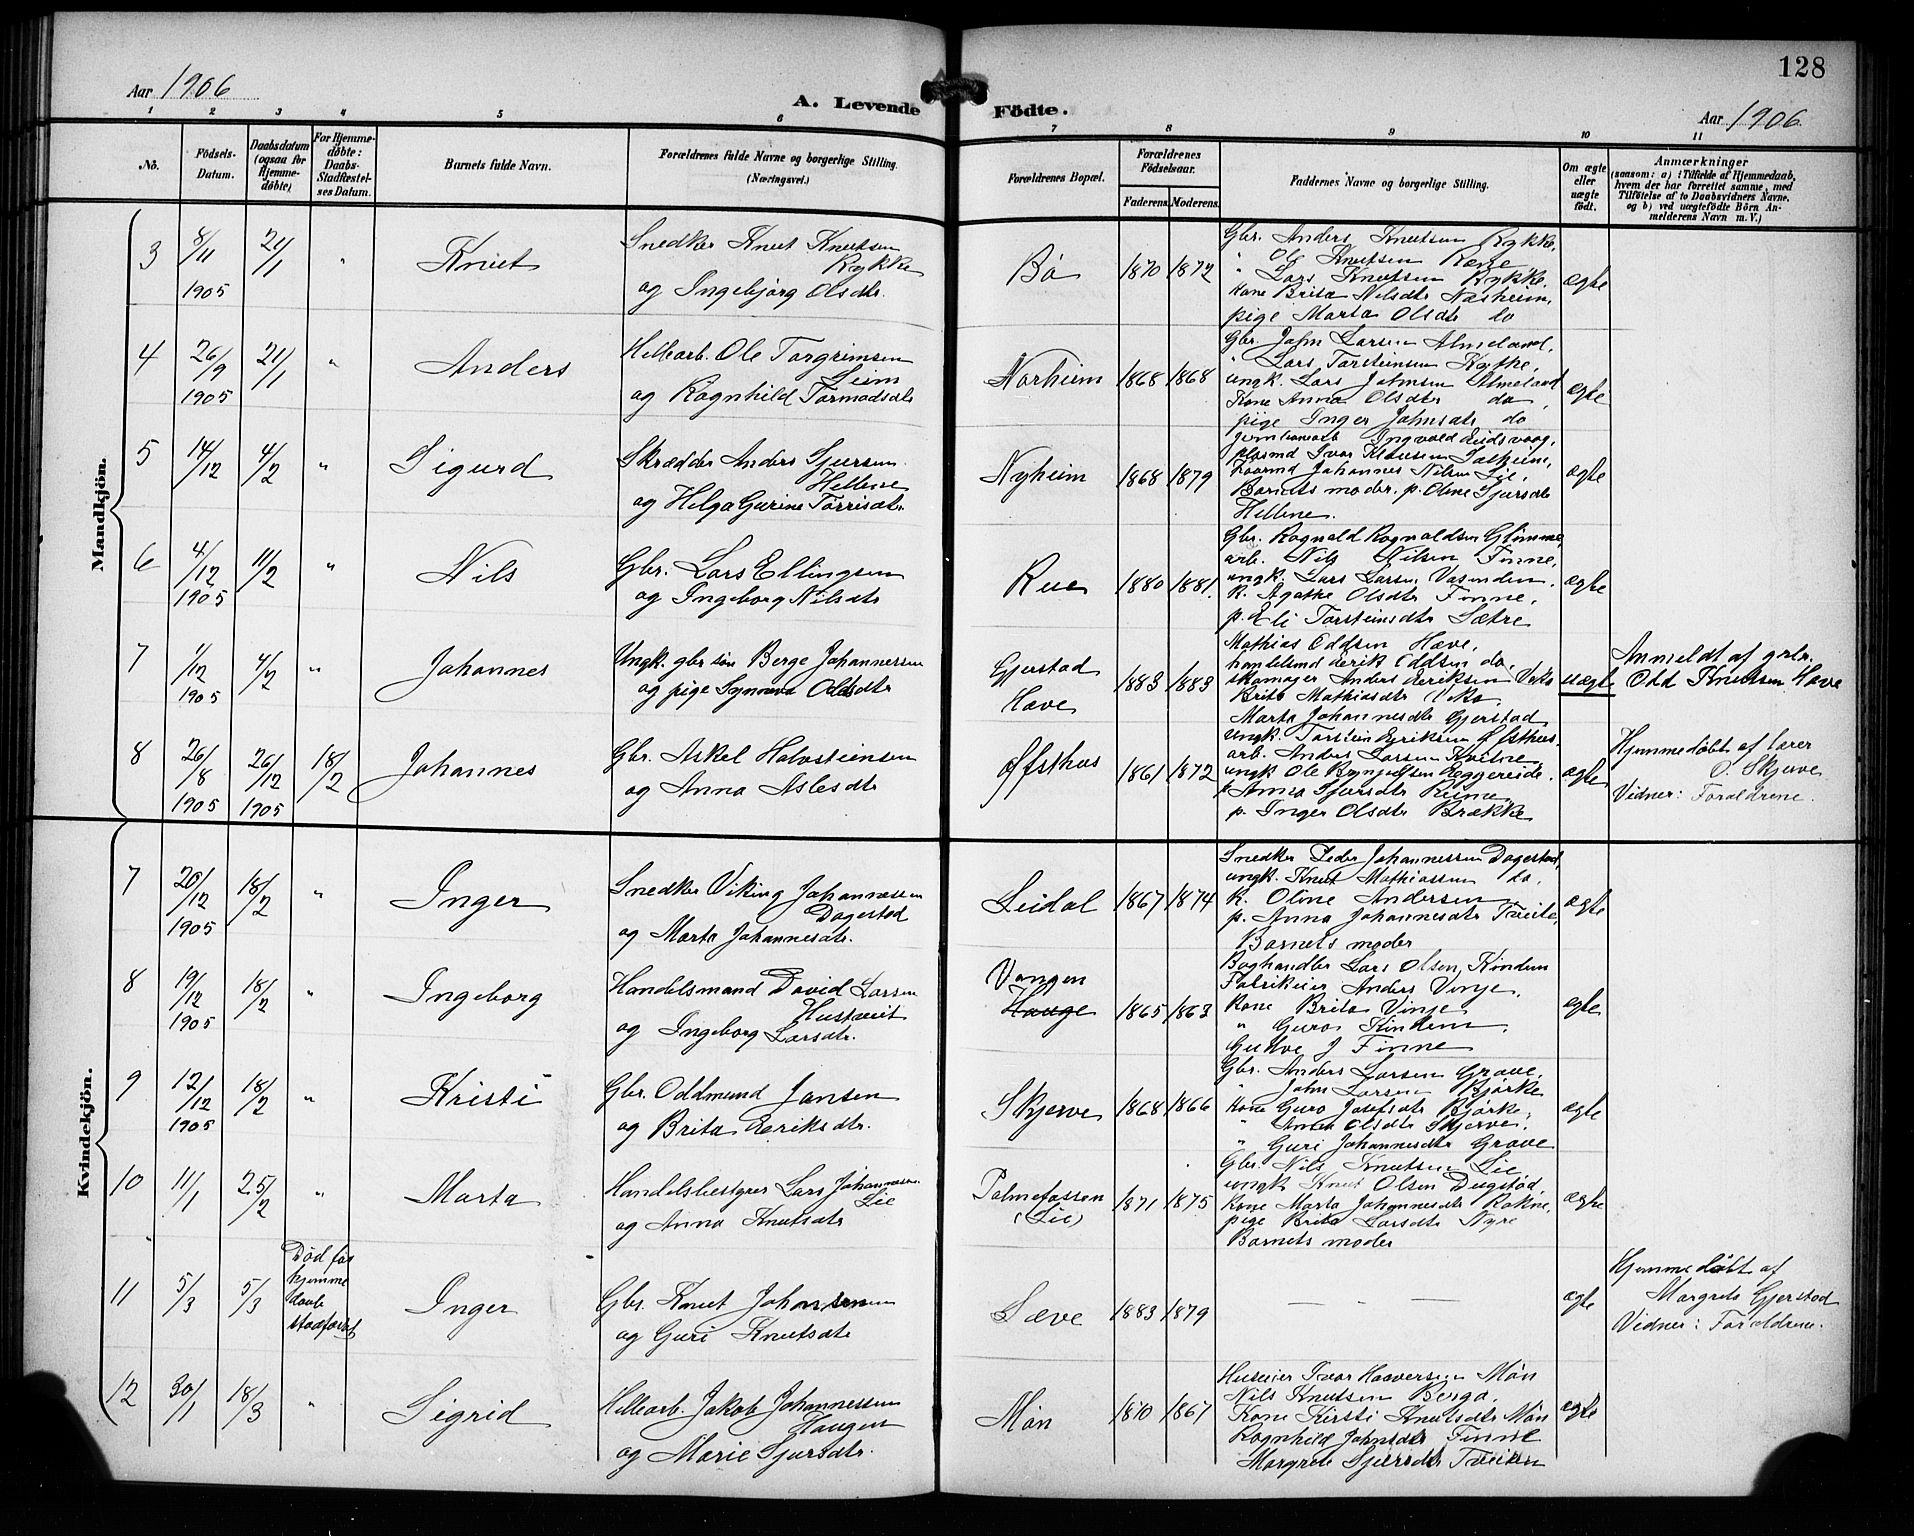 128
Aar 1906
A. Levende Födte.
Aar 1906
1 2 3 4 5 6 7 8 9 10 11
No.
Födsels-Datum.
Daabsdatum (ogsaa for Hjemme-döbte)
For Hjemme-döbte: Daabs-Stadfæstel-ses Datum.
Barnets fulde Navn.
Forældrenes fulde Navne og borgerlige Stilling. (Næringsvei.)
Forældrenes Bopæl.
Forældrenes Födselsaar.
Faderens. Moderens.
Faddernes Navne og borgerlige Stilling.
Om ægte eller uægte födt.
Anmærkninger
(saasom: a) i Tilfælde af Hjemmedaab, hvem der har forrettet samme, med Tilföielse af to Daabsvidners Navne, og b) ved uægtefödte Börn An-melderens Navn m. V.)
Mandkjön.
3 8/11 1905 21/1 " Knut
Snedker Knut Knutsen Rykke
og Ingebjørg Olsdtr.
Bø 1870 1872
Gbr. Anders Knutsen Rykke,
" Ole Knutsen Rene
" Lars Knutsen Rykke,
Kone Brita Nilsdtr Næsheim,
pige Marta Olsdtr do
ægte
4 26/9 1905 21/1 " Anders
Hellearb. Ole Torgrimsen Seim
og Ragnhild Tormodsdtr
Norheim 1868 1868
Gbr. John Larsen Almeland,
" Lars Torsteinsen Kytke,
ungk. Lars Johnsen Almeland
Kone Anna Olsdter do,
pige Inger Johnsdtr do
ægte
5 14/12 4/2 " Sigurd
Skrædder Anders Sjursen Hellene
og Helga Gurine Torrisdtr.
Nyheim 1868 1879
Ingvald Eidsvaag,
plasmd Ivar Klausen Satheim,
Johannes Nilsen Lie,
Barnets moder. p. Oline Sjursdtr
Hellene.
ægte
6 4/12 1905 11/2 " Nils
Gbr. Lars Ellingsen
og Ingeborg Nilsdtr
Rue 1880 1881.
Gbr. Ragnald Ragnaldsen Glimme,
arb. Nils Nilsen Finne,
ungk. Lars Larsen Vasenden,
K. Agathe Olsdtr Finne,
p. Eli Torsteinsdtr Sætre
ægte
7 1/12 1905 4/2 " Johannes
Ungk. gbr søn Berge Johannessen
og pige Synneva Oddsdtr
Gjerstad
Hæve 1883 1883
Mathias Oddsen Hæve,
handelsmd Eerik Oddsen do,
skomager Anders Eeriksen Væka
Brita Mathiasdtr Væka,
Marta Johannesdtr Gjerstad
uægte
Anmeldt af gbr.
Odd Knutsen Hæve
8 26/8 1905 26/12 1905 18/2 Johannes
Gbr. Askel Halvsteinsen
og Anna Aslesdtr
Øffsthus 1861 1872
ungk. Torstein Eeriksen Øfsthus,
arb. Anders Larsen Kvitne,
ungk Ole Brynjulfsen Eggereide.
p. Anna Sjursdtr Reime
p. Inger Olsdtr Brække
ægte
Hjemmedøbt af lærer
O. Skjerve
Vidner: Forældrene.
Kvindekjön.
7 20/12 1905 18/2 " Inger
Snedker Viking Johannessen Dagestad
og Marta Johannesdtr.
Leidal 1867 1874
Snedker Peder Johannessen Dagestad,
ungk. Knut Mathiassen do,
K. Oline Andersen
p. Anna Johannesdtr Tveite,
Barnets moder
ægte
8 19/12 1905 18/2 " Ingeborg
Handelsmand David Larsen Hustveit
og Ingeborg Larsdtr.
Vangen
Hauge 1865 1863
Boghandler Lars Olsen Kindem
Fabrikeier Anders Vinje,
Kone Brita Vinje,
" Guro Kindem,
J Finne
ægte
9 12/12 1905 18/2 " Kristi
Gbr. Oddmund Jansen
og Brita Eeriksdtr.
Skjerve 1868 1866
Gbr. Anders Larsen Grove,
" John Larsen Bjørke
Kone Guro Josefsdtr Bjørke,
" Anna Olsdtr Skjerve,
" Guri Johannesdtr Grove
ægte
10 11/1 25/2 " Marta
Handelsbestyrer Lars Johannessen Lie
og Anna Knutsdtr
Palmefossen
(Lie) 1871 1875
Gbr. Nils Knutsen Lie
ungk Knut Olsen Dugstad
Kone Marta Johannesdtr Rokne,
pige Brita Larsdtr Nyre
Barnets moder
ægte
11 5/3 5/3 Død før hjemme daab stadfæstet Inger
Gbr. Knut Johannesen
og Guri Knutsdtr
Sæve 1883 1879
— — —
ægte
Hjemmedøbt af
Margreta Gjerstad
Vidner: Forældrene.
12 30/1 18/3 " Sigrid
Hellearb. Jakob Johannessen Haugen
og Marie Sjursdtr.
Møn 1870 1867
Huseier Ivar Haaversen Møn
Nils Knutsen Berga,
Kone Kirsti Knutsdtr Møn
Ragnhild Johnsdtr Finne
Margreta Sjursdtr Tveiten
ægte